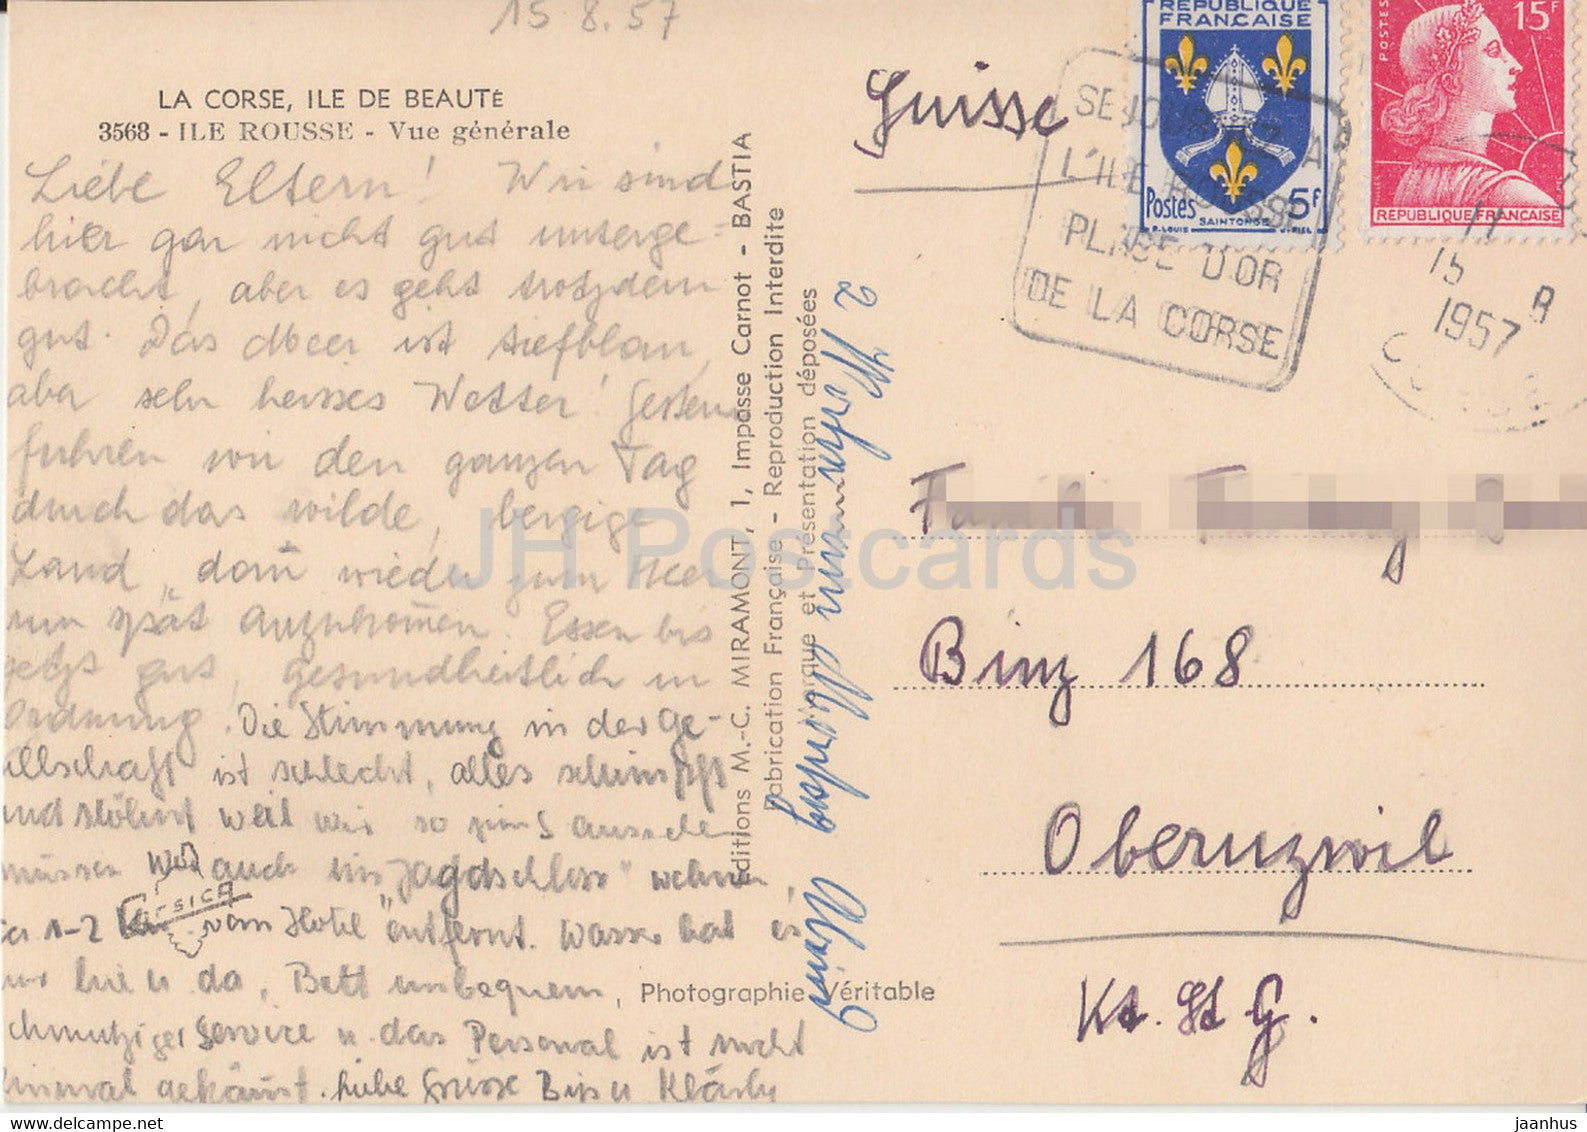 15.8.57
LA CORSE, ILE DE BEAUTÉ
3568 - ILE ROUSSE - Vue générale
Liebe Eltern! Wir sind
hier gar nicht gut unterge-
bracht, aber es geht trotzdem
gut. Das Meer ist tiefblau,
aber sehr heisses Wetter! Gestern
fuhren wir den ganzen Tag
durch das wilde, bergige
Land, dann wieder zum Meer
um spät anzukommen. Essen bis
jetzt gut, gesundheitlich in
Ordnung. Die Stimmung in der Ge-
sellschaft ist schlecht, alles schimpft
und stöhnt weil wir so
müssen auch im "Jagdschloss" wohnen,
1-2 vom Hotel entfernt. Wasser hat es
nur hie u da, Bett unbequem,
schmutziger Service u das Personal ist nicht
einmal gekämmt. Liebe Grüsse
CORSICA
Editions M.-C. MIRAMONT, 1, Impasse Carnot - BASTIA
Fabrication Française - Reproduction Interdite
Marque et Présentation déposées
Photographie Véritable
2
Suisse
REPUBLIQUE
FRANÇAISE
Postes
5F
SAINTONGE
POSTES
15F
REPUBLIQUE FRANÇAISE
SEJOURNEZ A
L'ILE ROUSSE
PLAGE D'OR
DE LA CORSE
11
15 8
1957
CORSE
Binz 168
Oberuzwil
Kt. St G.
JH Postcards
jaanhus © www.hipstamp.com